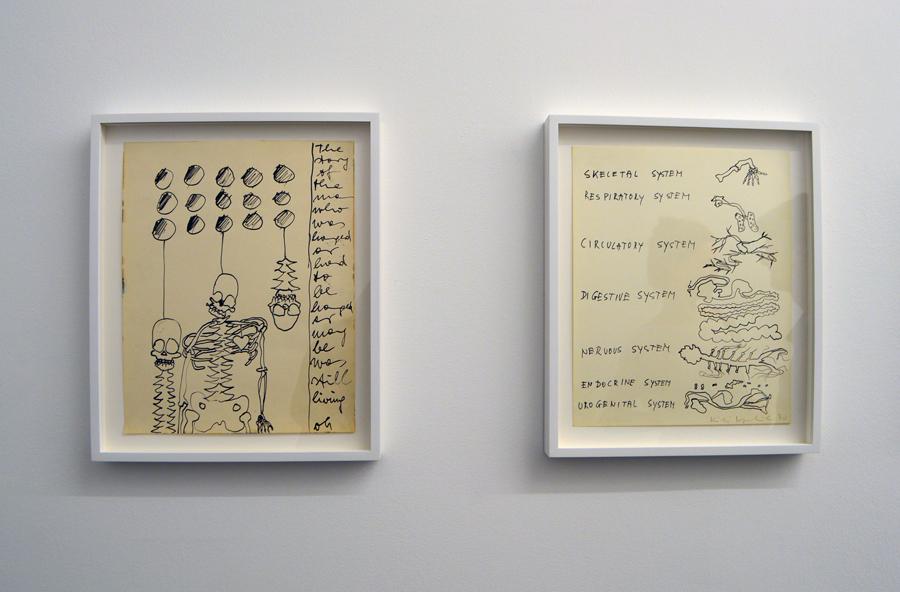 The
story
of
the
man
who
was
hanged
or
had
to
be
hanged
or
may
be
was
still
living
oh
SKELETAL SYSTEM
RESPIRATORY SYSTEM
CIRCULATORY SYSTEM
DIGESTIVE SYSTEM
NERVOUS SYSTEM
ENDOCRINE SYSTEM
UROGENITAL SYSTEM